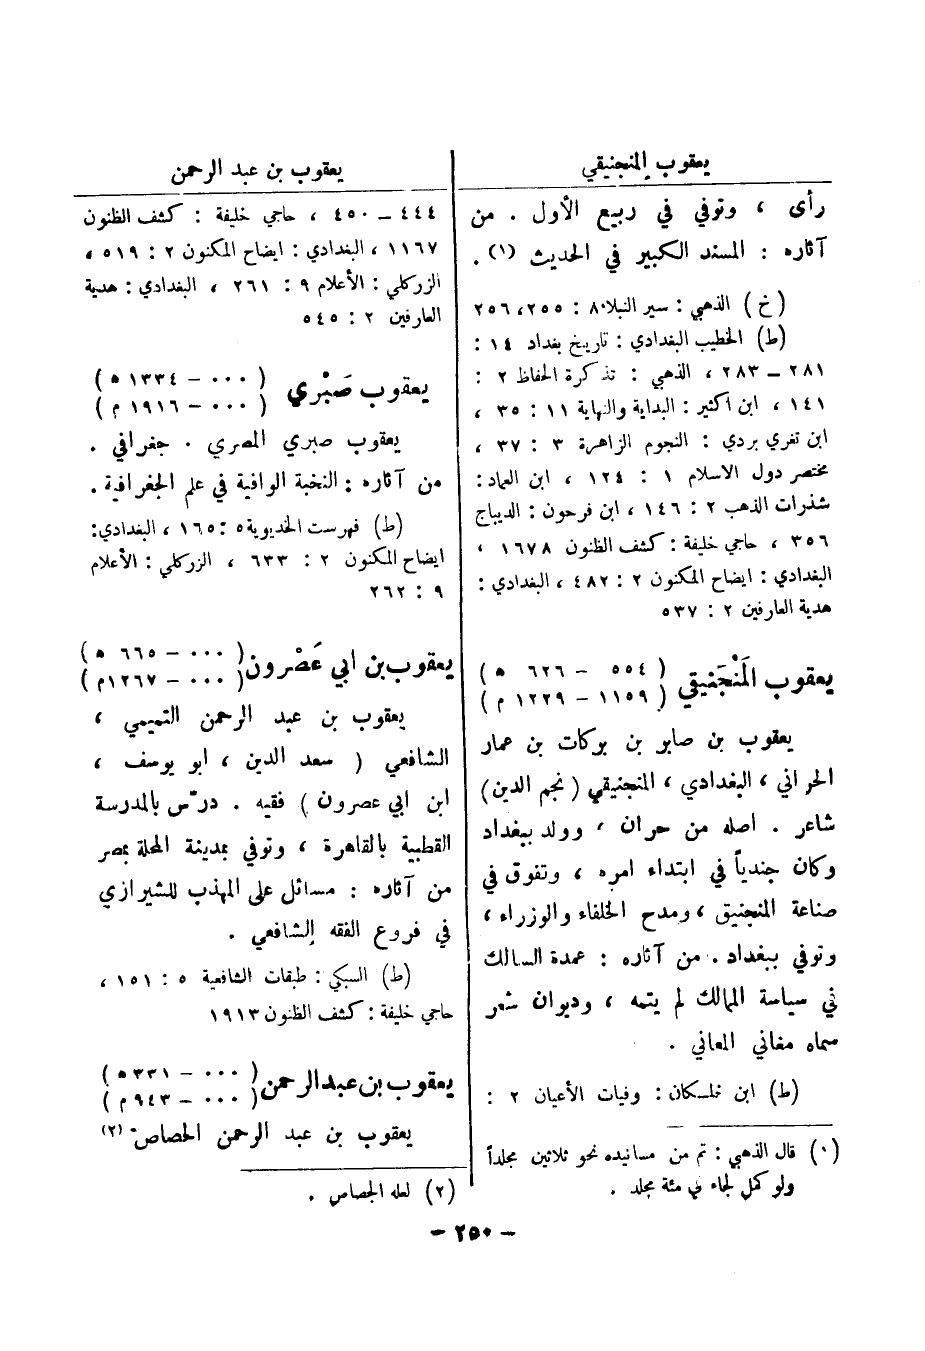 يعقوب المنجنيقي
رأى ، وتوفي في ربيع الأول . من
آثاره : المسند الكبير في الحديث (١) .
(خ) الذهبي : سير النبلاء ٨ : ٢٥٥، ٢٥٦
(ط) الخطيب البغدادي : تاريخ بغداد ١٤ :
٢٨١ – ٢٨٣ ، الذهبي : تذكرة الحفاظ ٢ :
١٤١ ، ابن اكثير : البداية والنهاية ١١ : ٣٥ ،
ابن تغري بردي : النجوم الزاهرة ٣ : ٣٧ ،
مختصر دول الاسلام ١ : ١٢٤ ، ابن العماد :
شذرات الذهب ٢ : ١٤٦ ، ابن فرحون : الديباج
٣٥٦ ، حاجي خليفة : كشف الظنون ١٦٧٨ ،
البغدادي : ايضاح المكنون ٢ : ٤٨٢ ، البغدادي :
هدية العارفين ٢ : ٥٣٧
يعقوب المَنْجَنيقي (٥٥٤ – ٦٢٦ ه)
(١١٥٩ – ١٢٢٩ م)
يعقوب بن صابر بن بركات بن عمار
الحراني ، البغدادي ، المنجنيقي (نجم الدين)
شاعر . اصله من حران ، وولد ببغداد
وكان جندياً في ابتداء امره ، وتفوق في
صناعة المنجنيق ، ومدح الخلفاء والوزراء ،
وتوفي ببغداد . من آثاره : عمدة السالك
في سياسة الممالك لم يتمه ، وديوان شعر
سماه مغاني المعاني .
(ط) ابن خلسكان : وفيات الأعيان ٢ :
(١) قال الذهبي : تم من مسانيده نحو ثلاثين مجلداً
ولو كمل لجاء في مئة مجلد .
يعقوب بن عبد الرحمن
٤٤٤ – ٤٥٠ ، حاجي خليفة : كشف الظنون
١١٦٧ ، البغدادي : ايضاح المكنون ٢ : ٥١٩ ،
الزركلي : الأعلام ٩ : ٢٦١ ، البغدادي : هدية
العارفين ٢ : ٥٤٥
يعقوب صَبْري (٠٠٠ – ١٣٣٤ ه)
(٠٠٠ – ١٩١٦ م)
يعقوب صبري المصري . جغرافي .
من آثاره : النخبة الوافية في علم الجغرافية .
(ط) فهرست الخديوية ٥ : ١٦٥ ، البغدادي :
ايضاح المكنون ٢ : ٦٣٣ ، الزركلي : الأعلام
٩ : ٢٦٢
يعقوب بن ابي عَصْرون (٠٠٠ – ٦٦٥ ه)
(٠٠٠ – ١٢٦٧ م)
يعقوب بن عبد الرحمن التميمي ،
الشافعي ( سعد الدين ، ابو يوسف ،
ابن ابي عصرون ) فقيه . درّس بالمدرسة
القطبية بالقاهرة ، وتوفي بمدينة المحلة بمصر
من آثاره : مسائل على المهذب للشيرازي
في فروع الفقه الشافعي .
(ط) السبكي : طبقات الشافعية ٥ : ١٥١ ،
حاجي خليفة : كشف الظنون ١٩١٣
يعقوب بن عبد الرحمن (٠٠٠ – ٣٣١ ه)
(٠٠٠ – ٩٤٣ م)
يعقوب بن عبد الرحمن الحصاص (٢)
(٢) لعله الجصاص .
– ٢٥٠ –